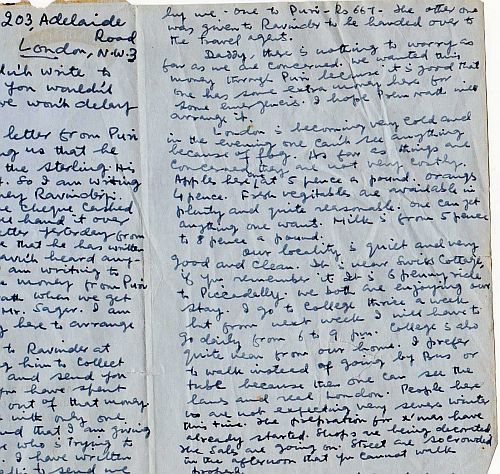 203, Adelaide
Road
London, N.W.3
write to
you would'd
we won't delay
letter from Puri
us that he
the sterling His
. So I am writing
Ravinderji,
cheque cashed
hand it over
letter yesterday from
that he has written
heard any-
am writing to
money from Puri
when we get
Mr. Sager. I am
here to arrange
to Ravinder at
him to collect
and send you
have spent
out of that money.
with only one
and that I am giving
who's trying to
I have written
to send we
by me. One to Puri - Rs 667. The other one
was given to Ravinder to be handed over to
the travel agent.
Daddy, there is nothing to worry as
far as we are concerned. We wanted this
money through Puri because it's good that
one has some extra money here for
some emergencies. I hope will
arrange it.
London is becoming very cold and
in the evening one can't see anything
because of fog. As far things are
concerned they are not very costly.
Apples here at 5 pence a pound. Orange
4 pence. Fresh vegitables are available in
plenty and quite reasonable. One can get
anything one want. Milk is from 5 pence
to 8 pence a pound.
Our locality is quiet and very
good and clean. It's near Swiss Cottage
if you remember it. It's 6 penny ride
to Piccadelly. We both are enjoying our
stay. I go to college thrice a week
but from next week I will have to
go daily from 6 to 9 pm. College is also
quite near from our home. I prefer
to walk instead of going by Bus or
tube because then one can see the
lanes and real London. People here
us are not expecting very severe winter
this time. The prepration for X'mas have
already started. Shops are being decorated
The Sales are going on. Street are so crowded
in the afternoon that you cannot walk